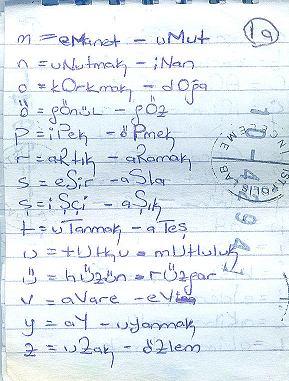 19
m = eManet - uMut
n = uNutmak - iNan
o = kOrkmak - dOğa
ö = gÖnüL - gÖz
p = iPek - öPmek
r = aRtık - aRamak
s = eSir - aSla
ş = iŞçi - aŞık
t = uTanmak - aTeş
u = tUtkU = mUtluluk
ü = hÜzün = rÜzgar
v = aVare - eV
y = aY - uYanmak
z = uZak - öZlem